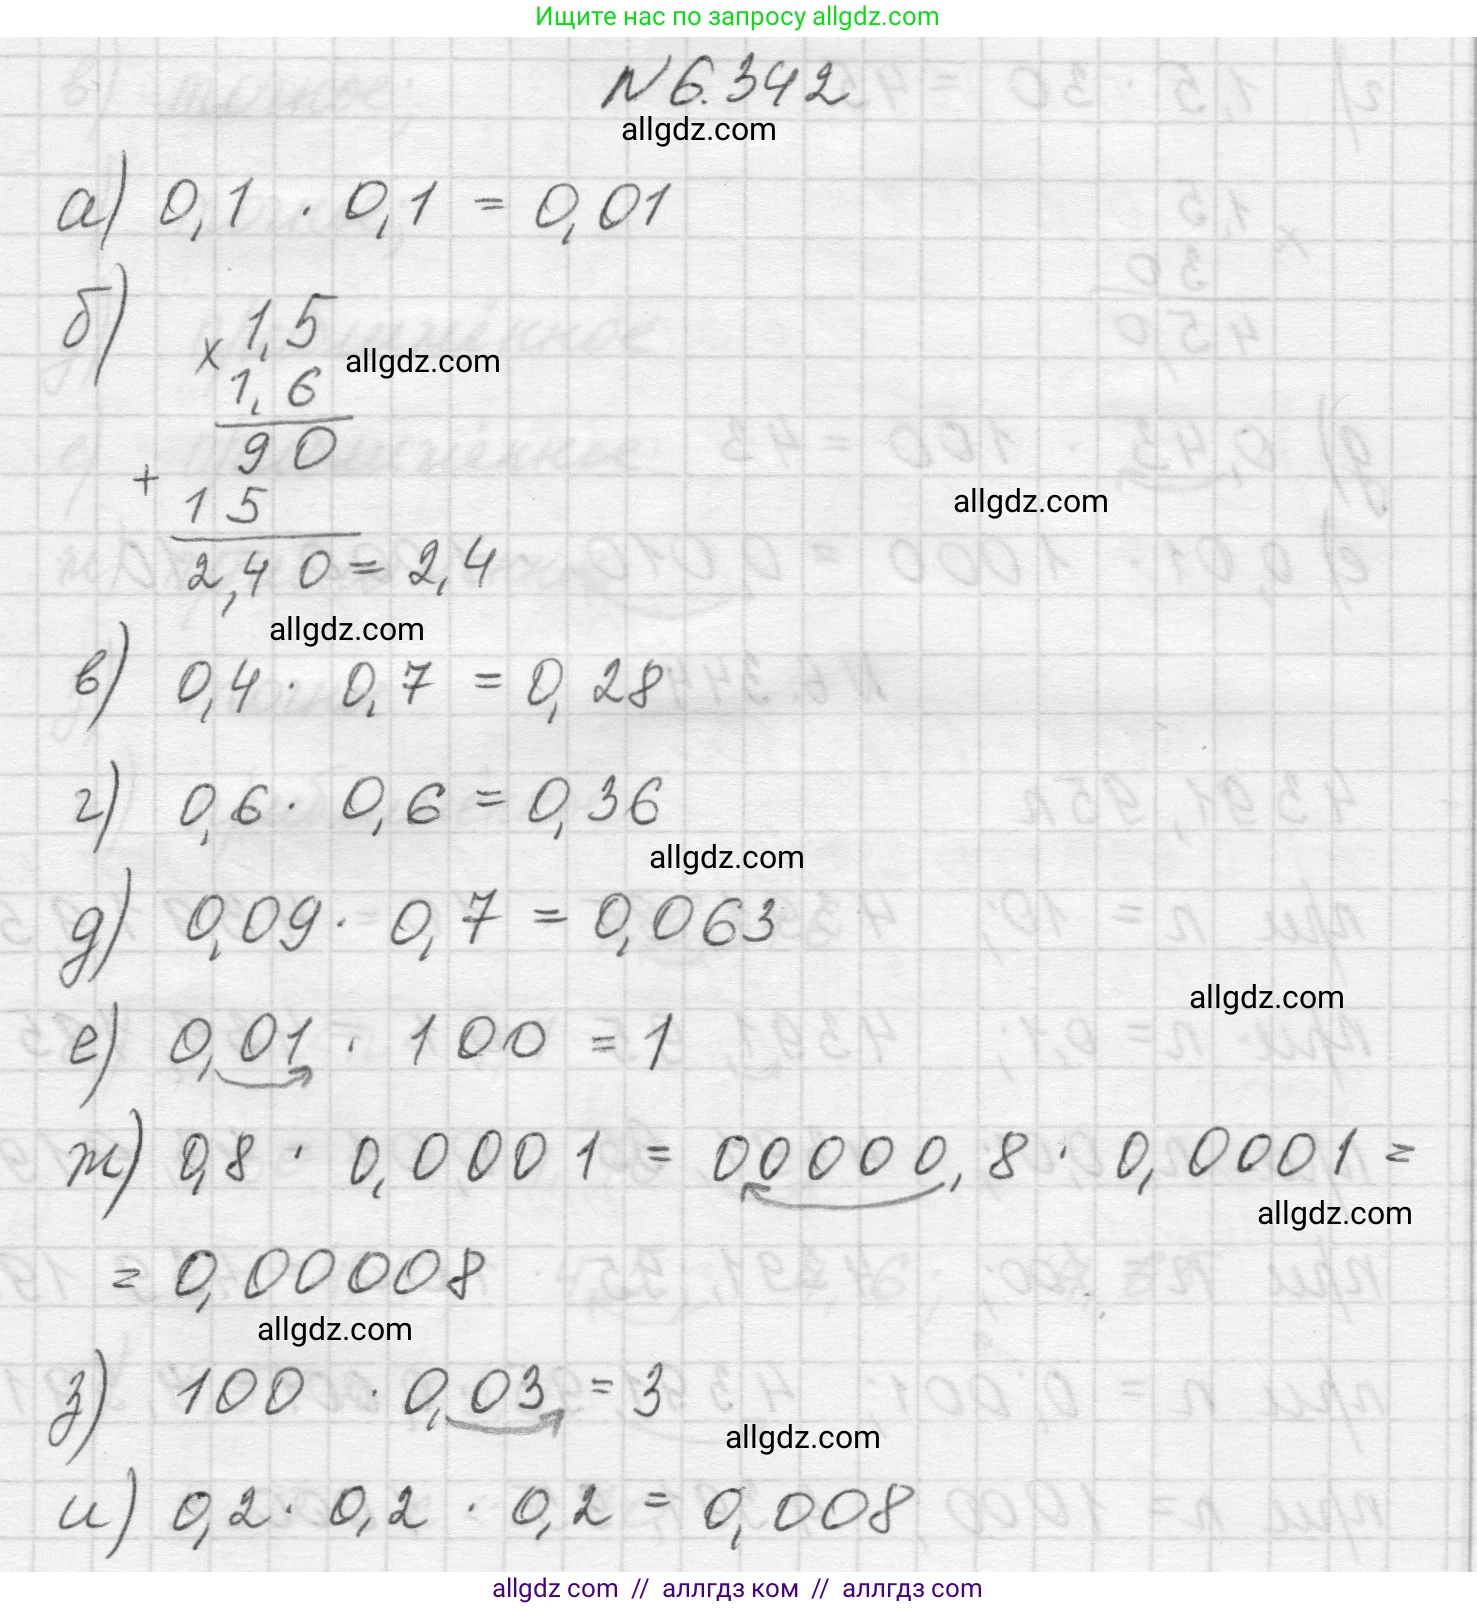 Ищите нас по запросу allgdz.com
№ 6.342
allgdz.com
а) 0,1 · 0,1 = 0,01
б)
× 1,5
allgdz.com
1,6
90
+
15
allgdz.com
2,40 = 2,4
allgdz.com
в) 0,4 · 0,7 = 0,28
г) 0,6 · 0,6 = 0,36
allgdz.com
д) 0,09 · 0,7 = 0,063
allgdz.com
е) 0,01 · 100 = 1
ж) 0,8 · 0,0001 = 00000,8 · 0,0001 =
allgdz.com
= 0,00008
allgdz.com
з) 100 · 0,03 = 3
allgdz.com
и) 0,2 · 0,2 · 0,2 = 0,008
allgdz com // аллгдз ком // аллгдз com